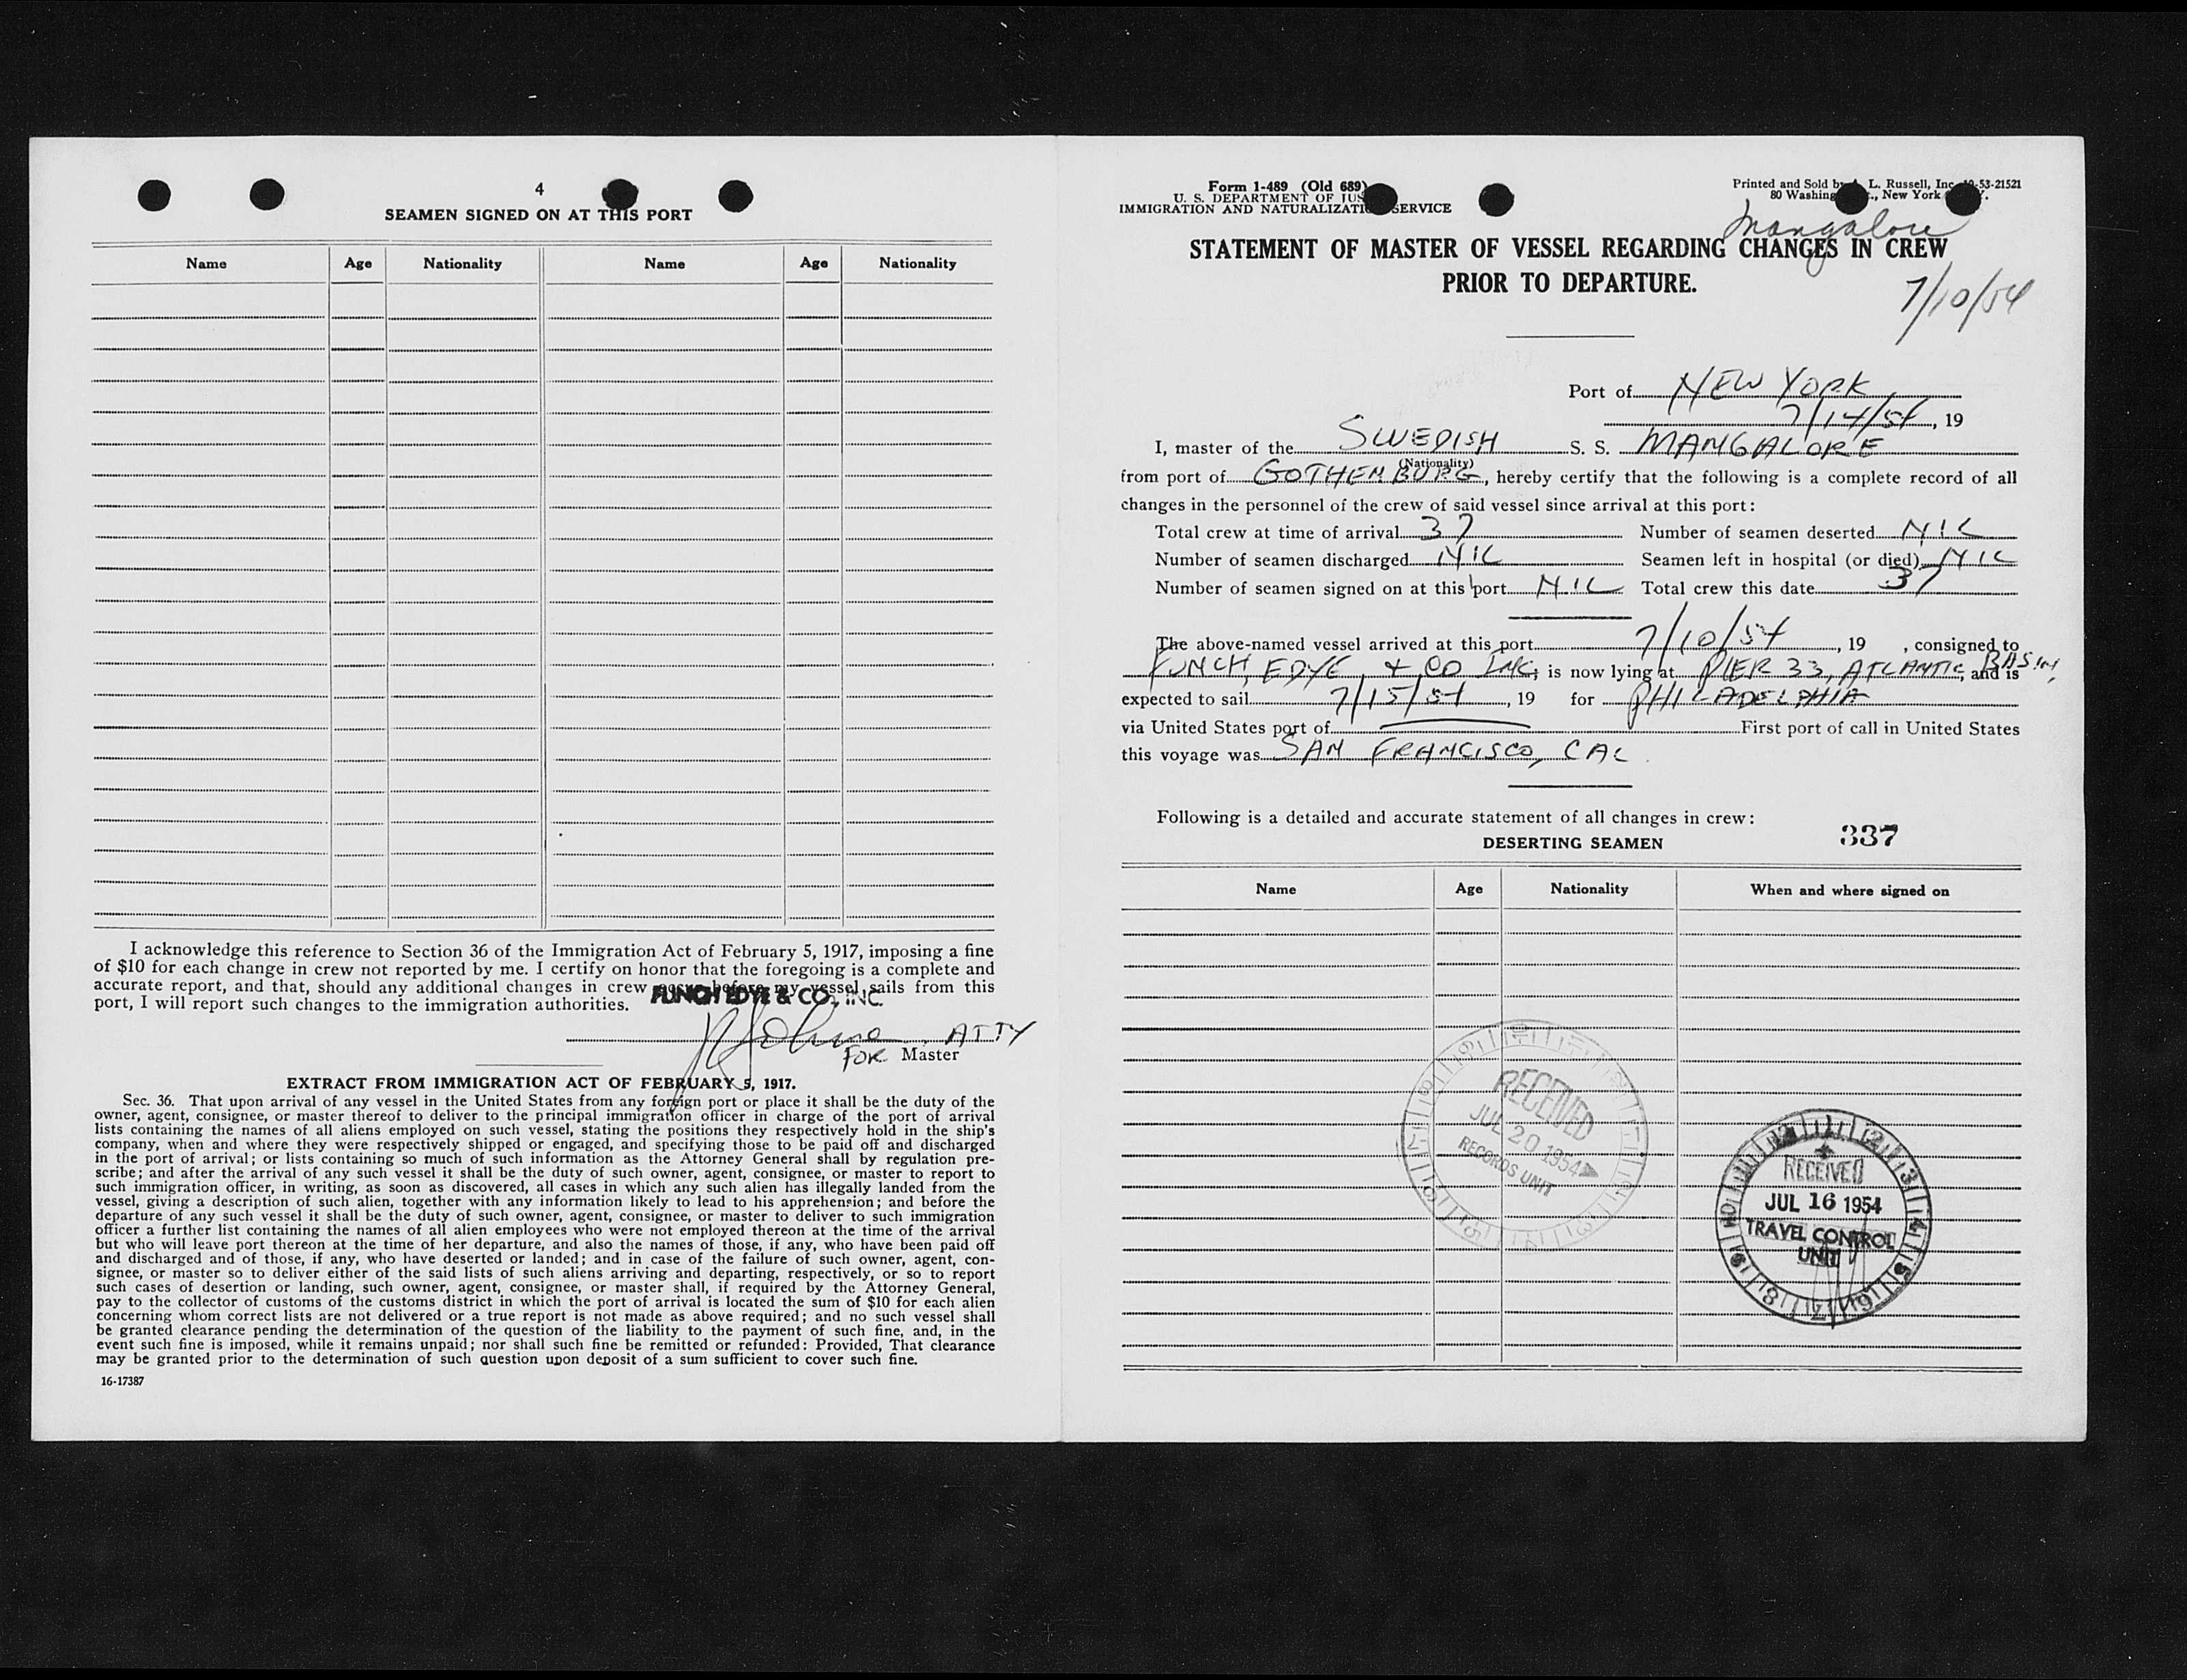 4
SEAMEN SIGNED ON AT THIS PORT
Name Age Nationality Name Age Nationality
I acknowledge this reference to Section 36 of the Immigration Act of February 5, 1917, imposing a fine
of $10 for each change in crew not reported by me. I certify on honor that the foregoing is a complete and
accurate report, and that, should any additional changes in crew occur before my vessel sails from this
port, I will report such changes to the immigration authorities.
FUNCH EDYE & CO., INC.
ATTY
FOR Master
EXTRACT FROM IMMIGRATION ACT OF FEBRUARY 5, 1917.
Sec. 36. That upon arrival of any vessel in the United States from any foreign port or place it shall be the duty of the
owner, agent, consignee, or master thereof to deliver to the principal immigration officer in charge of the port of arrival
lists containing the names of all aliens employed on such vessel, stating the positions they respectively hold in the ship's
company, when and where they were respectively shipped or engaged, and specifying those to be paid off and discharged
in the port of arrival; or lists containing so much of such information as the Attorney General shall by regulation pre-
scribe; and after the arrival of any such vessel it shall be the duty of such owner, agent, consignee, or master to report to
such immigration officer, in writing, as soon as discovered, all cases in which any such alien has illegally landed from the
vessel, giving a description of such alien, together with any information likely to lead to his apprehension; and before the
departure of any such vessel it shall be the duty of such owner, agent, consignee, or master to deliver to such immigration
officer a further list containing the names of all alien employees who were not employed thereon at the time of the arrival
but who will leave port thereon at the time of her departure, and also the names of those, if any, who have been paid off
and discharged and of those, if any, who have deserted or landed; and in case of the failure of such owner, agent, con-
signee, or master so to deliver either of the said lists of such aliens arriving and departing, respectively, or so to report
such cases of desertion or landing, such owner, agent, consignee, or master shall, if required by the Attorney General,
pay to the collector of customs of the customs district in which the port of arrival is located the sum of $10 for each alien
concerning whom correct lists are not delivered or a true report is not made as above required; and no such vessel shall
be granted clearance pending the determination of the question of the liability to the payment of such fine, and, in the
event such fine is imposed, while it remains unpaid; nor shall such fine be remitted or refunded: Provided, That clearance
may be granted prior to the determination of such question upon deposit of a sum sufficient to cover such fine.
16-17387
Form 1-489 (Old 689)
U. S. DEPARTMENT OF JUS
IMMIGRATION AND NATURALIZATION SERVICE
Printed and Sold by L. Russell, Inc. 53-21521
80 Washing , New York
Mangalore
STATEMENT OF MASTER OF VESSEL REGARDING CHANGES IN CREW
PRIOR TO DEPARTURE.
7/10/54
Port of NEW YORK
7/14/54, 19
I, master of the SWEDISH S. S. MANGALORE
(Nationality)
from port of GOTHENBURG, hereby certify that the following is a complete record of all
changes in the personnel of the crew of said vessel since arrival at this port:
Total crew at time of arrival 37 Number of seamen deserted NIL
Number of seamen discharged NIL Seamen left in hospital (or died) NIL
Number of seamen signed on at this port NIL Total crew this date 37
The above-named vessel arrived at this port 7/10/54, 19 , consigned to
FUNCH, EDYE, & CO. INC; is now lying at PIER 33, ATLANTIC BASIN, and is
expected to sail 7/15/54, 19 for PHILADELPHIA
via United States port of First port of call in United States
this voyage was SAN FRANCISCO, CAL
Following is a detailed and accurate statement of all changes in crew:
337
DESERTING SEAMEN
Name Age Nationality When and where signed on
RECEIVED
JUL 20 1954
RECORDS UNIT
RECEIVED
JUL 16 1954
TRAVEL CONTROL
UNIT